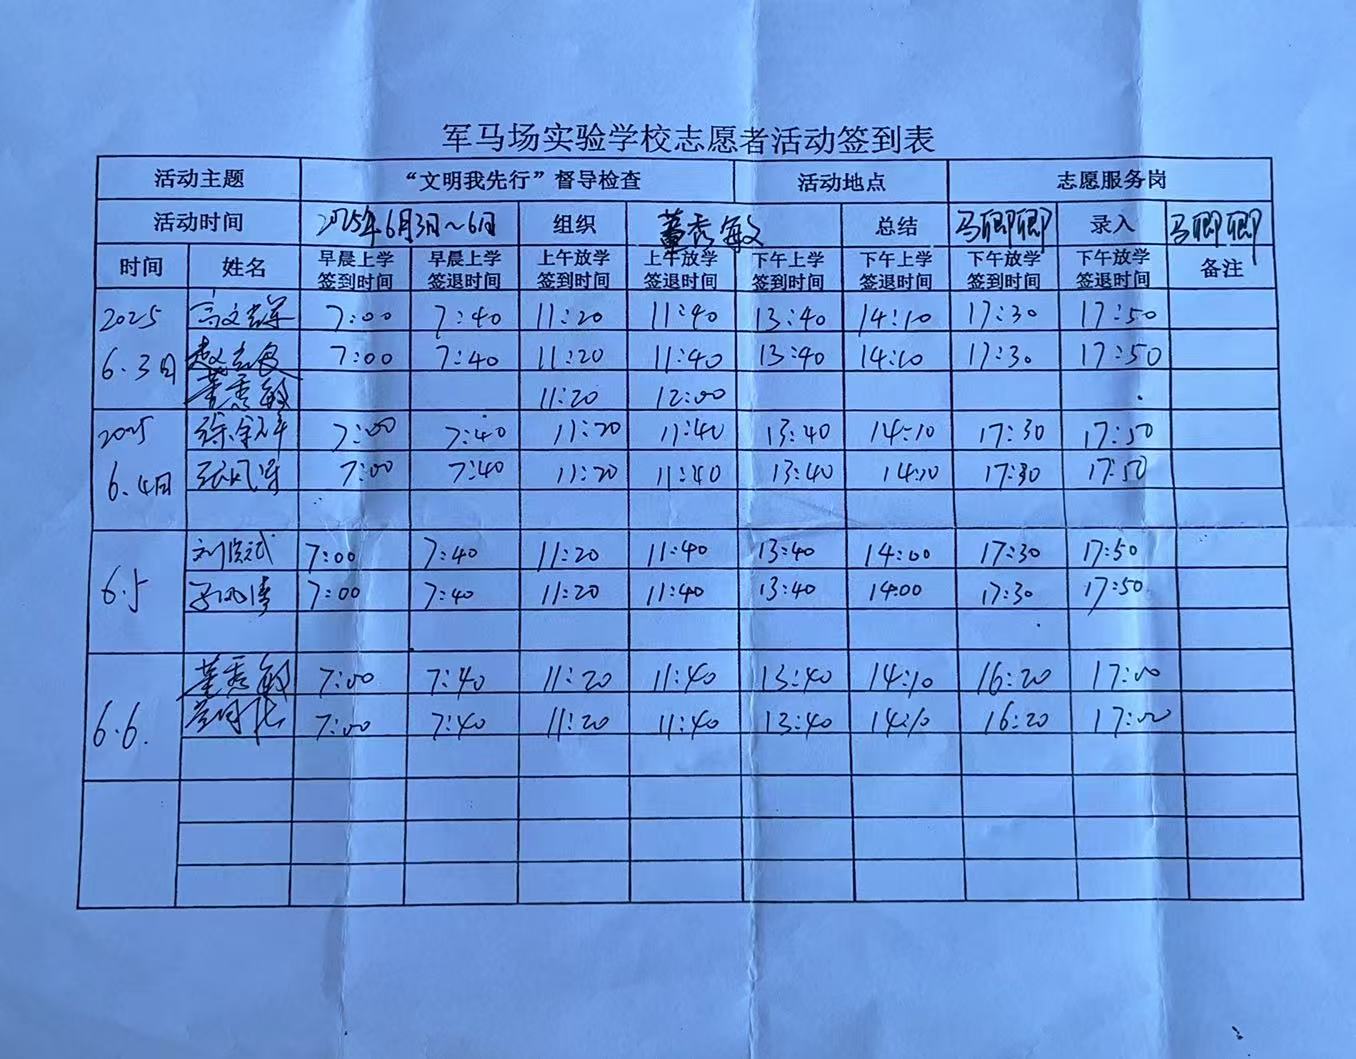 军马场实验学校志愿者活动签到表
活动主题 “文明我先行”督导检查 活动地点 志愿服务岗
活动时间 2025年6月3日~6日 组织 董秀敏 总结 马卿卿 录入 马卿卿
时间 姓名 早晨上学签到时间 早晨上学签退时间 上午放学签到时间 上午放学签退时间 下午上学签到时间 下午上学签退时间 下午放学签到时间 下午放学签退时间 备注
2025 7:00 7:40 11:20 11:40 13:40 14:10 17:30 17:50
6.3日 7:00 7:40 11:20 11:40 13:40 14:10 17:30 17:50
董秀敏 11:20 12:00
2025 7:00 7:40 11:20 11:40 13:40 14:10 17:30 17:50
6.4日 7:00 7:40 11:20 11:40 13:40 14:10 17:30 17:50
6.5 7:00 7:40 11:20 11:40 13:40 14:00 17:30 17:50
7:00 7:40 11:20 11:40 13:40 14:00 17:30 17:50
6.6. 董秀敏 7:00 7:40 11:20 11:40 13:40 14:10 16:20 17:00
7:00 7:40 11:20 11:40 13:40 14:10 16:20 17:00